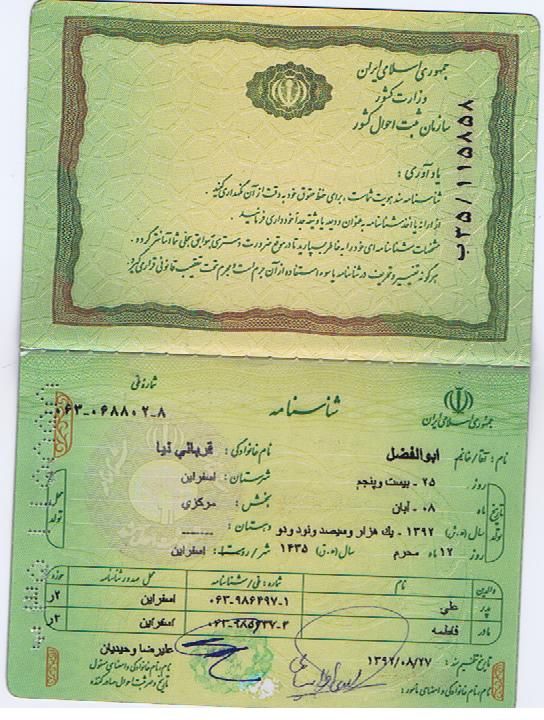 جمهوری اسلامی ایران
وزارت کشور
سازمان ثبت احوال کشور
ب۳۵/۱۱۵۸۵۸
یادآوری :
شناسنامه سند هویت شماست ، برای حفظ حقوق خود به دقت از آن نگهداری کنید .
از ارائه یا اخذ شناسنامه به عنوان ودیعه یا وثیقه جداً خودداری فرمائید .
مشخصات شناسنامه ای خود را به خاطر بسپارید تا در موقع ضرورت دسترسی به سوابق سجلی شما آسانتر گردد .
هرگونه تغییر و تحریف در شناسنامه یا سوء استفاده از آن جرم است و مجرم تحت تعقیب قانونی قرار می گیرد
شماره ملی
۰۶۳-۰۶۸۸۰۲-۸
شناسنامه
جمهوری اسلامی ایران
نام : آقا/خانم ابوالفضل نام خانوادگی : قربانی نیا
تاریخ تولد
روز ۲۵ - بیست وپنجم شهرستان : اسفراین
ماه ۰۸ - آبان بخش : مرکزی
سال (ه.ش) ۱۳۹۲ - یك هزار وسیصد ونود ودو دهستان : ------
روز ۱۲ ماه محرم سال (ه.ق) ۱۴۳۵ شهر/روستا : اسفراین
محل تولد
والدین نام شماره : ملی/شناسنامه محل صدور شناسنامه حوزه
پدر علی ۰۶۳-۹۸۶۴۹۷-۱ اسفراین ۲ر
مادر فاطمه اسفراین ۲ر
تاریخ تنظیم سند : ۱۳۹۲/۰۸/۲۷ علیرضا وحیدیان
نام و نام خانوادگی و امضای مأمور : نام و نام خانوادگی و امضای مسئول
تاریخ و مهر ثبت احوال صادرکننده